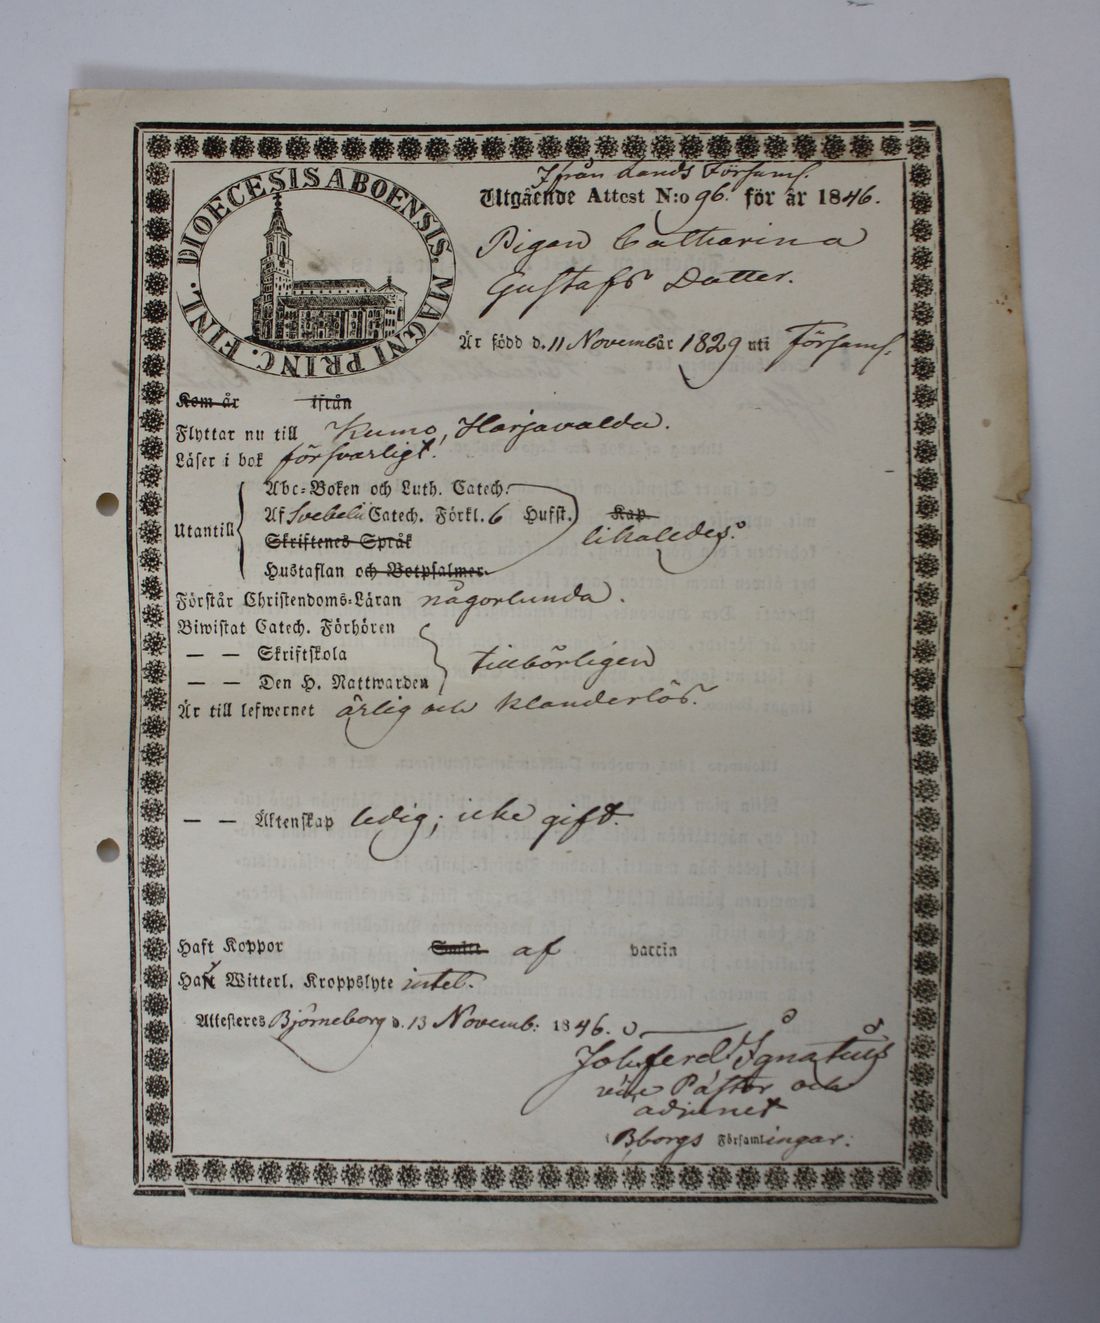 DIOECESIS ABOENSIS. MAGNI PRINC. FINL.
Ifrån Lands Församl.
Utgående Attest N:o 96. för år 1846.
Pigan Catharina
Gustafs Dotter.
Är född d. 11 Novembär 1829 uti Församl.
Kom år ifrån
Flyttar nu till Kumo, Harjavalda.
Läser i bok försvarligt.
Abc-Boken och Luth. Catech.
Utantill Af Svebelii Catech. Förkl. 6 Hufst. Kap. likaledes.
Skriftenes Språk
Hustaflan och Botpsalmer
Förstår Christendoms-Läran någorlunda.
Biwistat Catech. Förhören
— — Skriftskola tillbörligen
— — Den H. Nattwarden
Är till lefwernet ärlig och klanderlös.
— — Äktenskap ledig; icke gift.
Haft Koppor Smitt af vaccin
Haft Witterl. Kroppslyte intet.
Attesteres Björneborg d. 13 Novemb: 1846.
Joh. Ferd. Ignatius
vice Pastor och
adjunct
i Bborgs Församlingar.